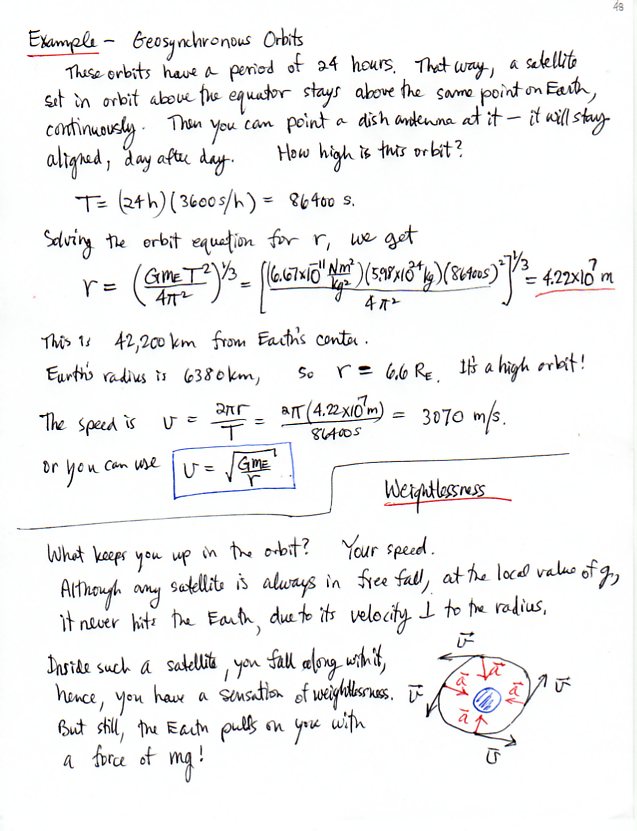 48
Example – Geosynchronous Orbits
These orbits have a period of 24 hours. That way, a satellite
set in orbit above the equator stays above the same point on Earth,
continuously. Then you can point a dish antenna at it – it will stay
aligned, day after day. How high is this orbit?
T = (24h)(3600 s/h) = 86400 s.
Solving the orbit equation for r, we get
r = (GmE T²/4π²)^1/3 = [(6.67x10^-11 Nm²/kg²)(5.98x10^24 kg)(86400s)²/4π²]^1/3 = 4.22x10^7 m
This is 42,200 km from Earth's center.
Earth's radius is 6380 km, so r = 6.6 RE. It's a high orbit!
The speed is v = 2πr/T = 2π(4.22x10^7 m)/86400s = 3070 m/s.
or you can use v = √(GmE/r)
Weightlessness
What keeps you up in the orbit? Your speed.
Although any satellite is always in free fall, at the local value of g,
it never hits the Earth, due to its velocity ⊥ to the radius.
Inside such a satellite, you fall along with it,
hence, you have a sensation of weightlessness.
But still, the Earth pulls on you with
a force of mg!
v⃗
a⃗
v⃗ a⃗ a⃗ v⃗
a⃗
v⃗